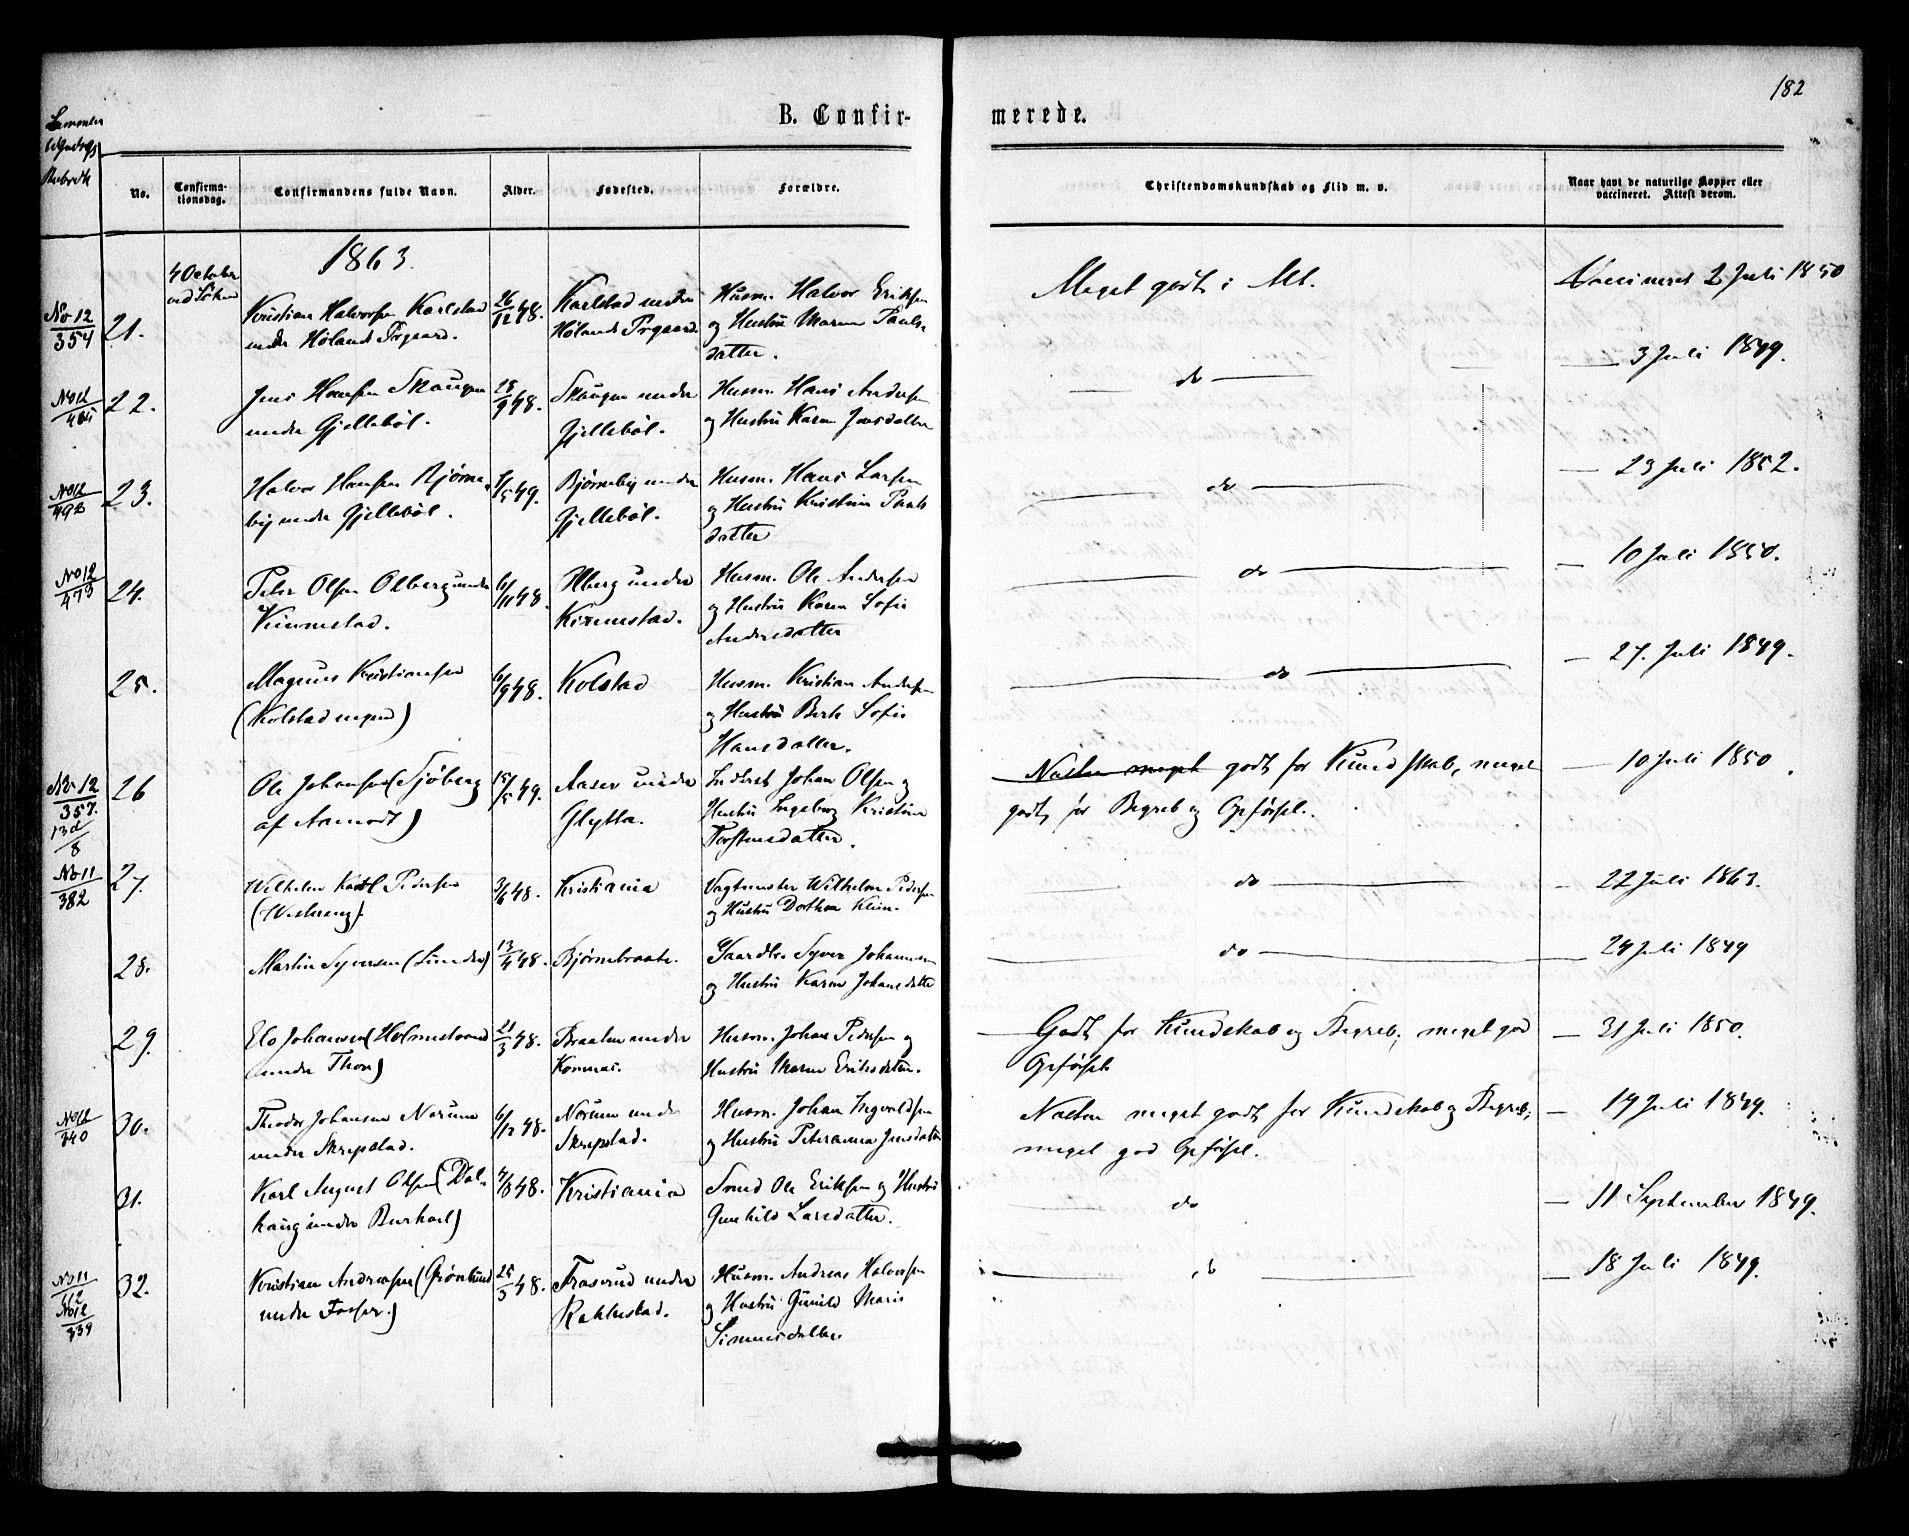 182
B. Confir-
merede.
No.
Confirma-
tionsdag.
Confirmandens fulde Navn.
Alder.
Fødested.
Forældre.
Christendomskundskab og Flid m. v.
Naar havt de naturlige Kopper eller
vaccineret. Attest derom.
1863.
4 October
No 12
354
21.
Kristian Halvorsen Karlstad
under Hølands Prgaard.
26/12 48.
Karlstad under
Hølands Prgaard.
Husm. Halvor Eriksen
og Hustru Maren Pauls-
datter.
Meget godt i Alt.
Vaccineret 2 Juli 1850
No 12
22.
Jens Hansen Skaugen
under Gjellebøl.
28/9 48.
Skaugen under
Gjellebøl.
Husm. Hans Andersen
og Hustru Karen Jensdatter
do
3 Juli 1849.
No 12
23.
Halvor Hansen Bjørne-
by under Gjellebøl.
49.
Bjørneby under
Gjellebøl.
Husm. Hans Larsen
og Hustru Kristine Pauls
datter
do
23 Juli 1852.
No 12
473
24.
Peter Olsen Olberg under
Kinnestad.
6/11 48.
Olberg under
Kinnestad.
Husm. Ole Andersen
og Hustru Karen Sofie
Andersdatter
do
10 Juli 1850.
25.
Magnus Kristiansen
(Kolstad
6/9 48.
Kolstad
Husm. Kristian Andersen
og Hustru Berte Sofie
Hansdatter.
do
27. Juli 1849.
No 12
357.
13d/8
26
Ole Johansen (Sjøberg
af Aamodt)
15/5 49.
Aaser under
Glytta.
Inderst Johan Olsen og
Hustru Ingeborg Kristine
Torstensdatter.
Næsten meget godt for Kundskab, meget
godt for Begreb og Opførsel.
10 Juli 1850
No 11
382
27.
Wilhelm Karl Pedersen
3/6 48.
Kristiania
Vagtmester Wilhelm Pedersen
og Hustru Dorthea
do
22 Juli 1863.
28.
Martin Syversen (Lunder)
13/4 48.
Bjørnebraate.
Gaardbr. Syver Johannesen
og Hustru Karen Johansdatter
do
24 Juli 1849
29.
Elo Johansen (Holmestrand
under Thon)
21/3 48.
Braaten under
Komnes.
Husm. Johan Pedersen og
Hustru Maren Eriksdatter.
Godt for Kundskab og Begreb; meget god
Opførsel
31 Juli 1850.
No 12
340
30.
Theodor Johansen Norum
under Skrepstad.
6/12 48.
Norum under
Skrepstad.
Husm. Johan Ingvaldsen
og Hustru Peteranna Jensdatter
Næsten meget godt for Kundskab og Begreb;
meget god Opførsel.
14 Juli 1849.
31.
Karl August Olsen (Dal-
haug under Burholl)
4/8 48.
Kristiania
Smed Ole Eriksen og Hustru
Gunhild Larsdatter.
do
11 September 1849.
No 11
112
No 12
339
32.
Kristian Andreasen (Grønlund
under Fosser.)
25/3 48.
Fraserud under
Kakkelstad.
Husm. Andreas Halvorsen
og Hustru Gunild Marie
Simensdatter
do
18 Juli 1849.